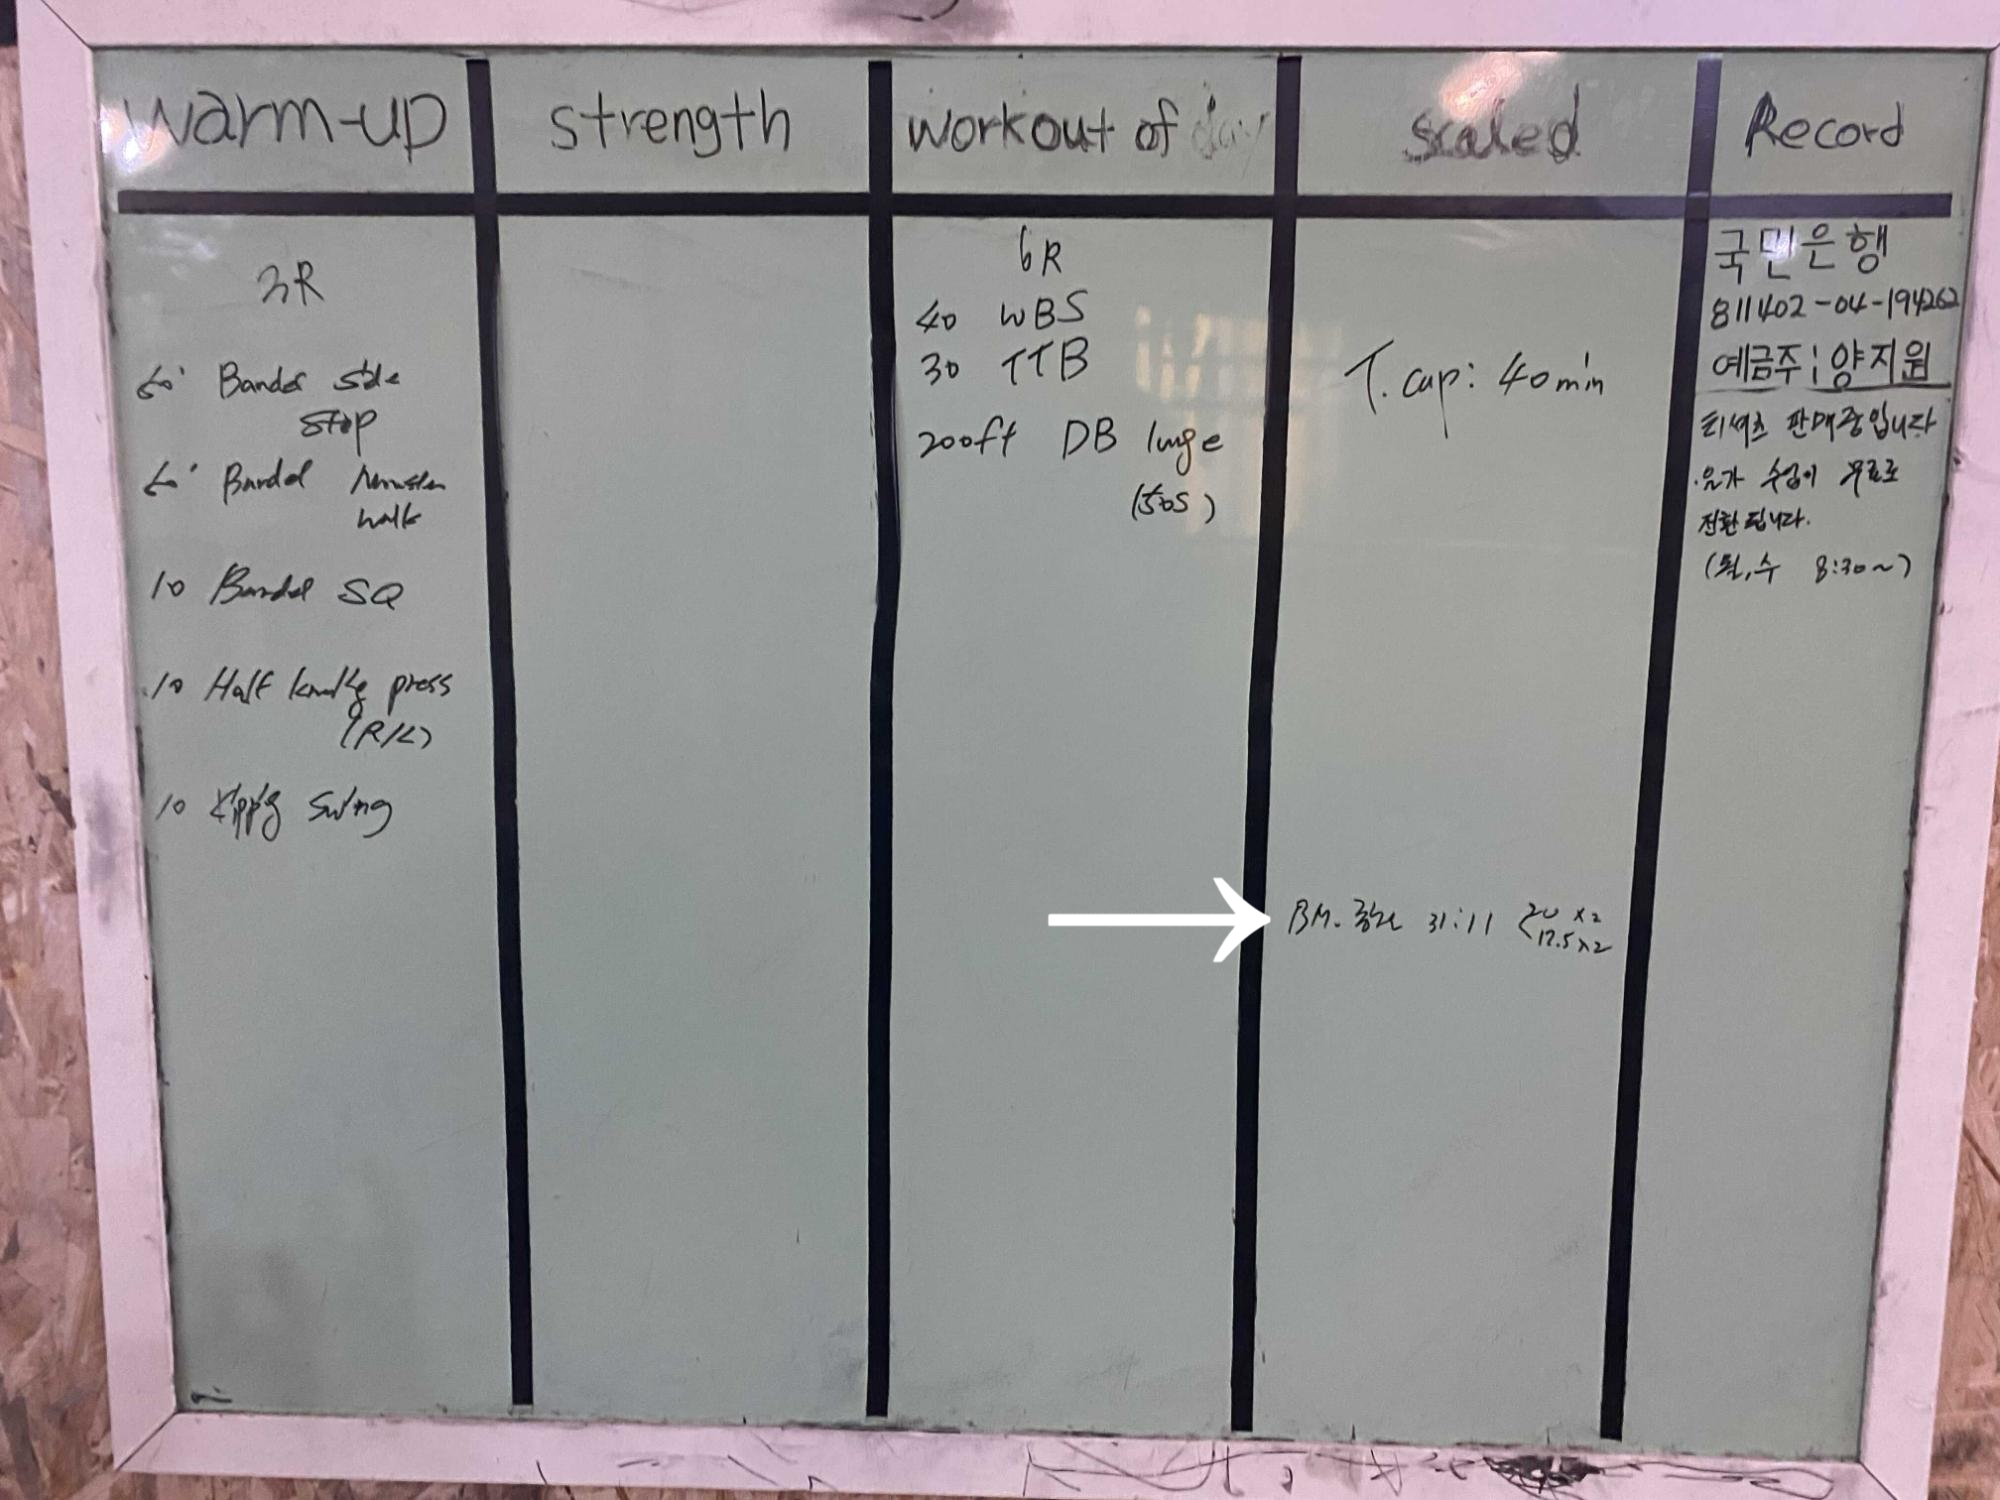 warm-up
strength
workout of day
scaled
Record
3R
60' Banded side
step
60' Banded Monster
walk
10 Banded SQ
10 Half kneeling press
(R/L)
10 Kipp'g Swing
6R
40 WBS
30 TTB
200ft DB lunge
(50s)
T. cap: 40min
BM. 31:11 < 20 x2
17.5x2
국민은행
811402-04-194262
예금주 : 양지원
티셔츠 판매중입니다
요가 수업이 무료로
전환됩니다.
(월,수 8:30~)